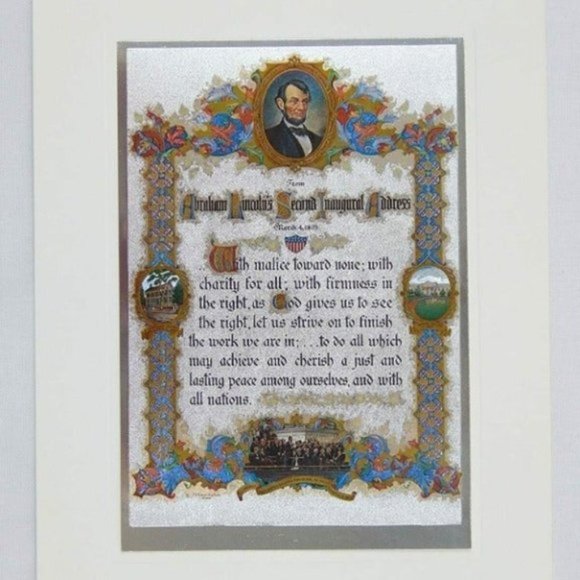 From
Abraham Lincoln's Second Inaugural Address
(March 4, 1865)
...With malice toward none; with
charity for all; with firmness in
the right, as God gives us to see
the right, let us strive on to finish
the work we are in;...to do all which
may achieve and cherish a just and
lasting peace among ourselves, and with
all nations.